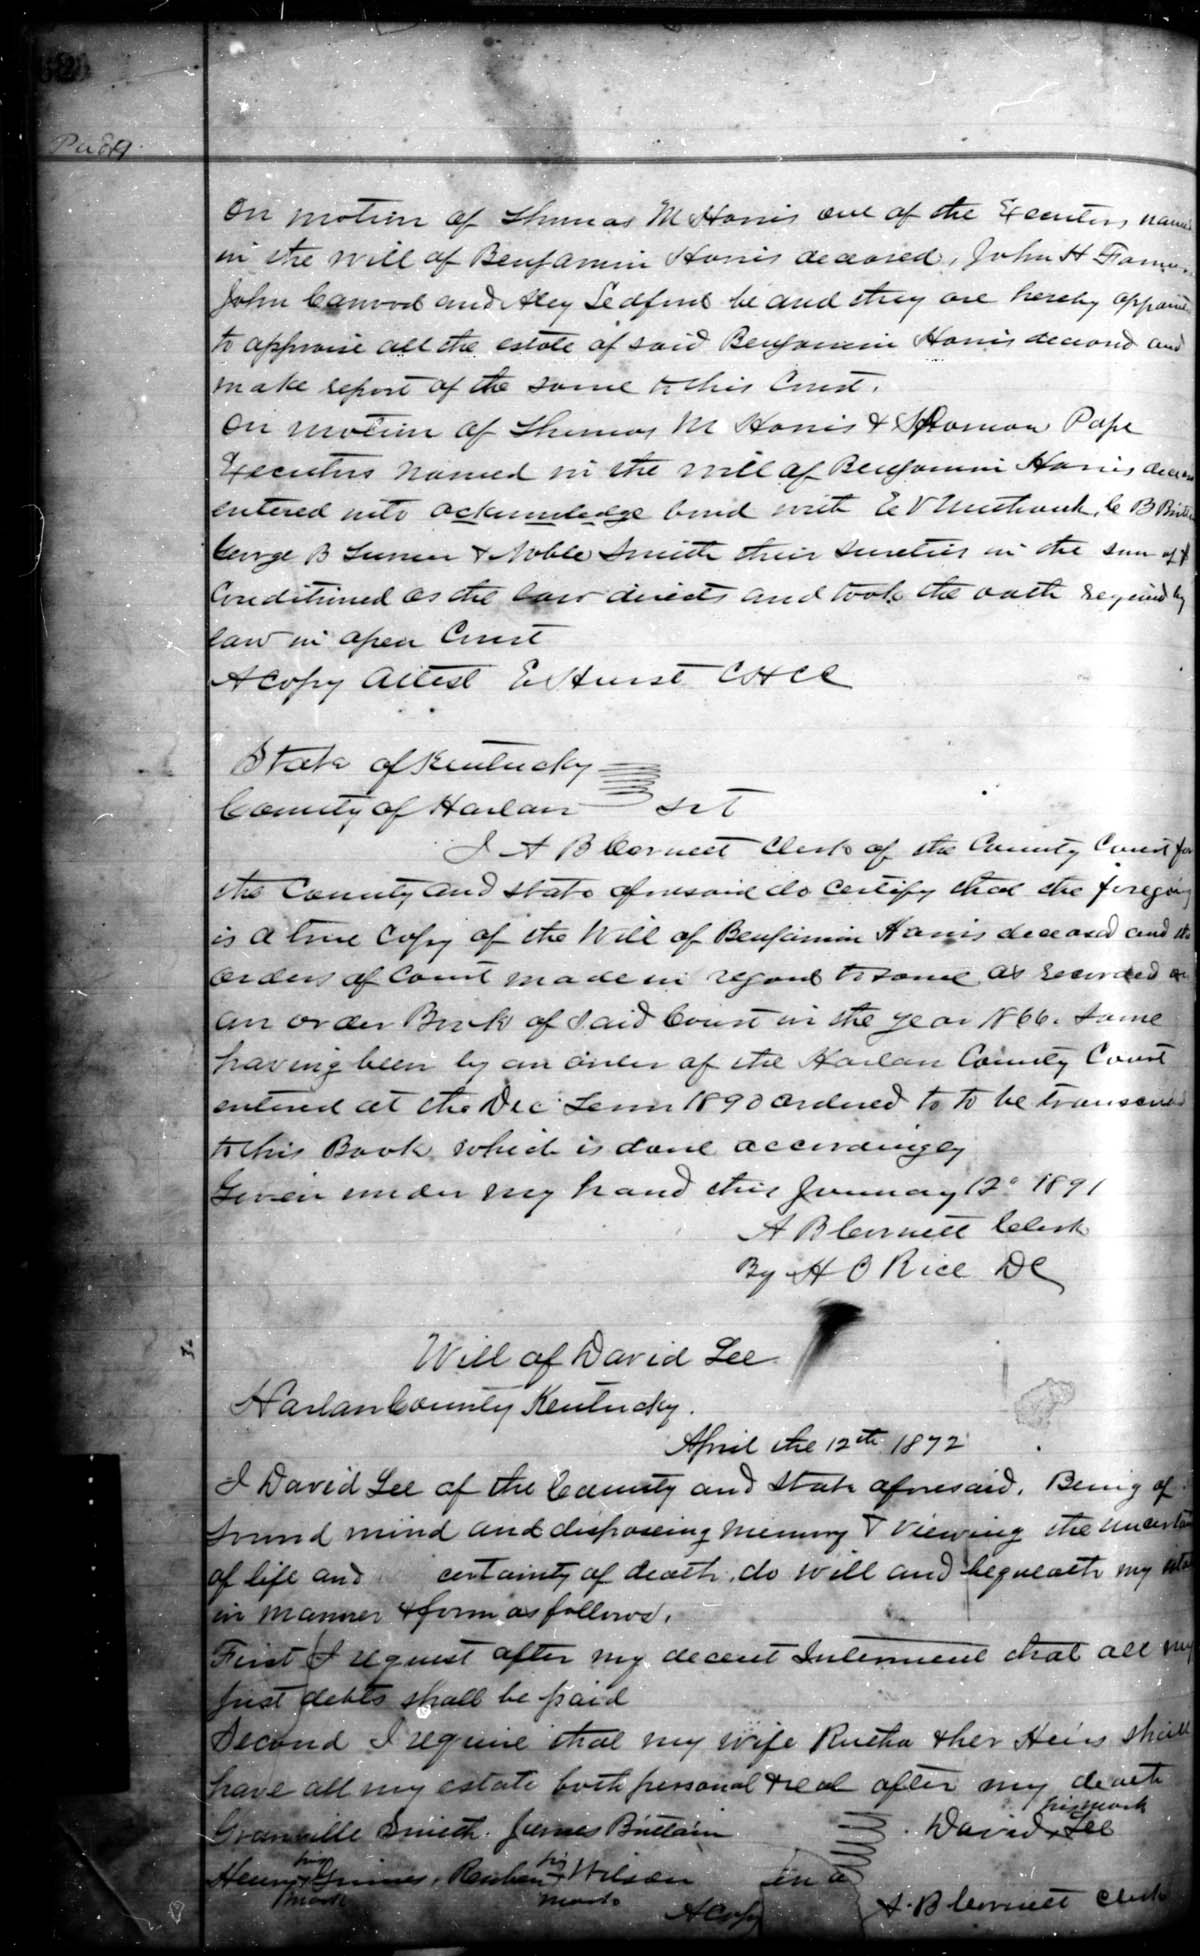 On motion of Thomas M Harris one of the Executors named
in the will of Benjamin Harris deceased, John H
John Cawood and Aley Ledford be and they are hereby
to appraise all the estate of said Benjamin Harris deceased and
make report of the same to this Court.
On motion of Thomas M Harris & Pope
Executors named in the will of Benjamin Harris
entered into acknowledge bond with C B
George B Turner & Noble Smith their sureties in the sum of
Conditioned as the law directs and took the oath required by
law in open Court
A Copy Attest E Hurst CHCC
State of Kentucky
County of Harlan Sct
I A B Cornett Clerk of the County Court for
the County and state aforesaid do certify that the foregoing
is a true Copy of the Will of Benjamin Harris deceased and the
orders of Court made in regard to same as recorded
an order Book of said Court in the year 1866. Same
having been by an order of the Harlan County Court
entered at the Dec Term 1890 ordered to to be
to this Book which is done accordingly
Given under my hand this January 12" 1891
A B Cornett Clerk
By H O Rice DC
Will of David Lee
Harlan County Kentucky.
April the 12th 1872
I David Lee of the County and State aforesaid. Being of
sound mind and disposeing memory & Viewing the
of life and certainty of death, do will and bequeath my
in manner & form as follows.
First I request after my decent Interment that all my
just debts shall be paid
Second I require that my wife Rutha & her Heirs shall
have all my estate both personal & real after my death
his mark
Granville Smith. James Brittain David x Lee
his his
Henry x Grimes, Reuben x Wilson
mark mark
A Copy A. B Cornett Clerk